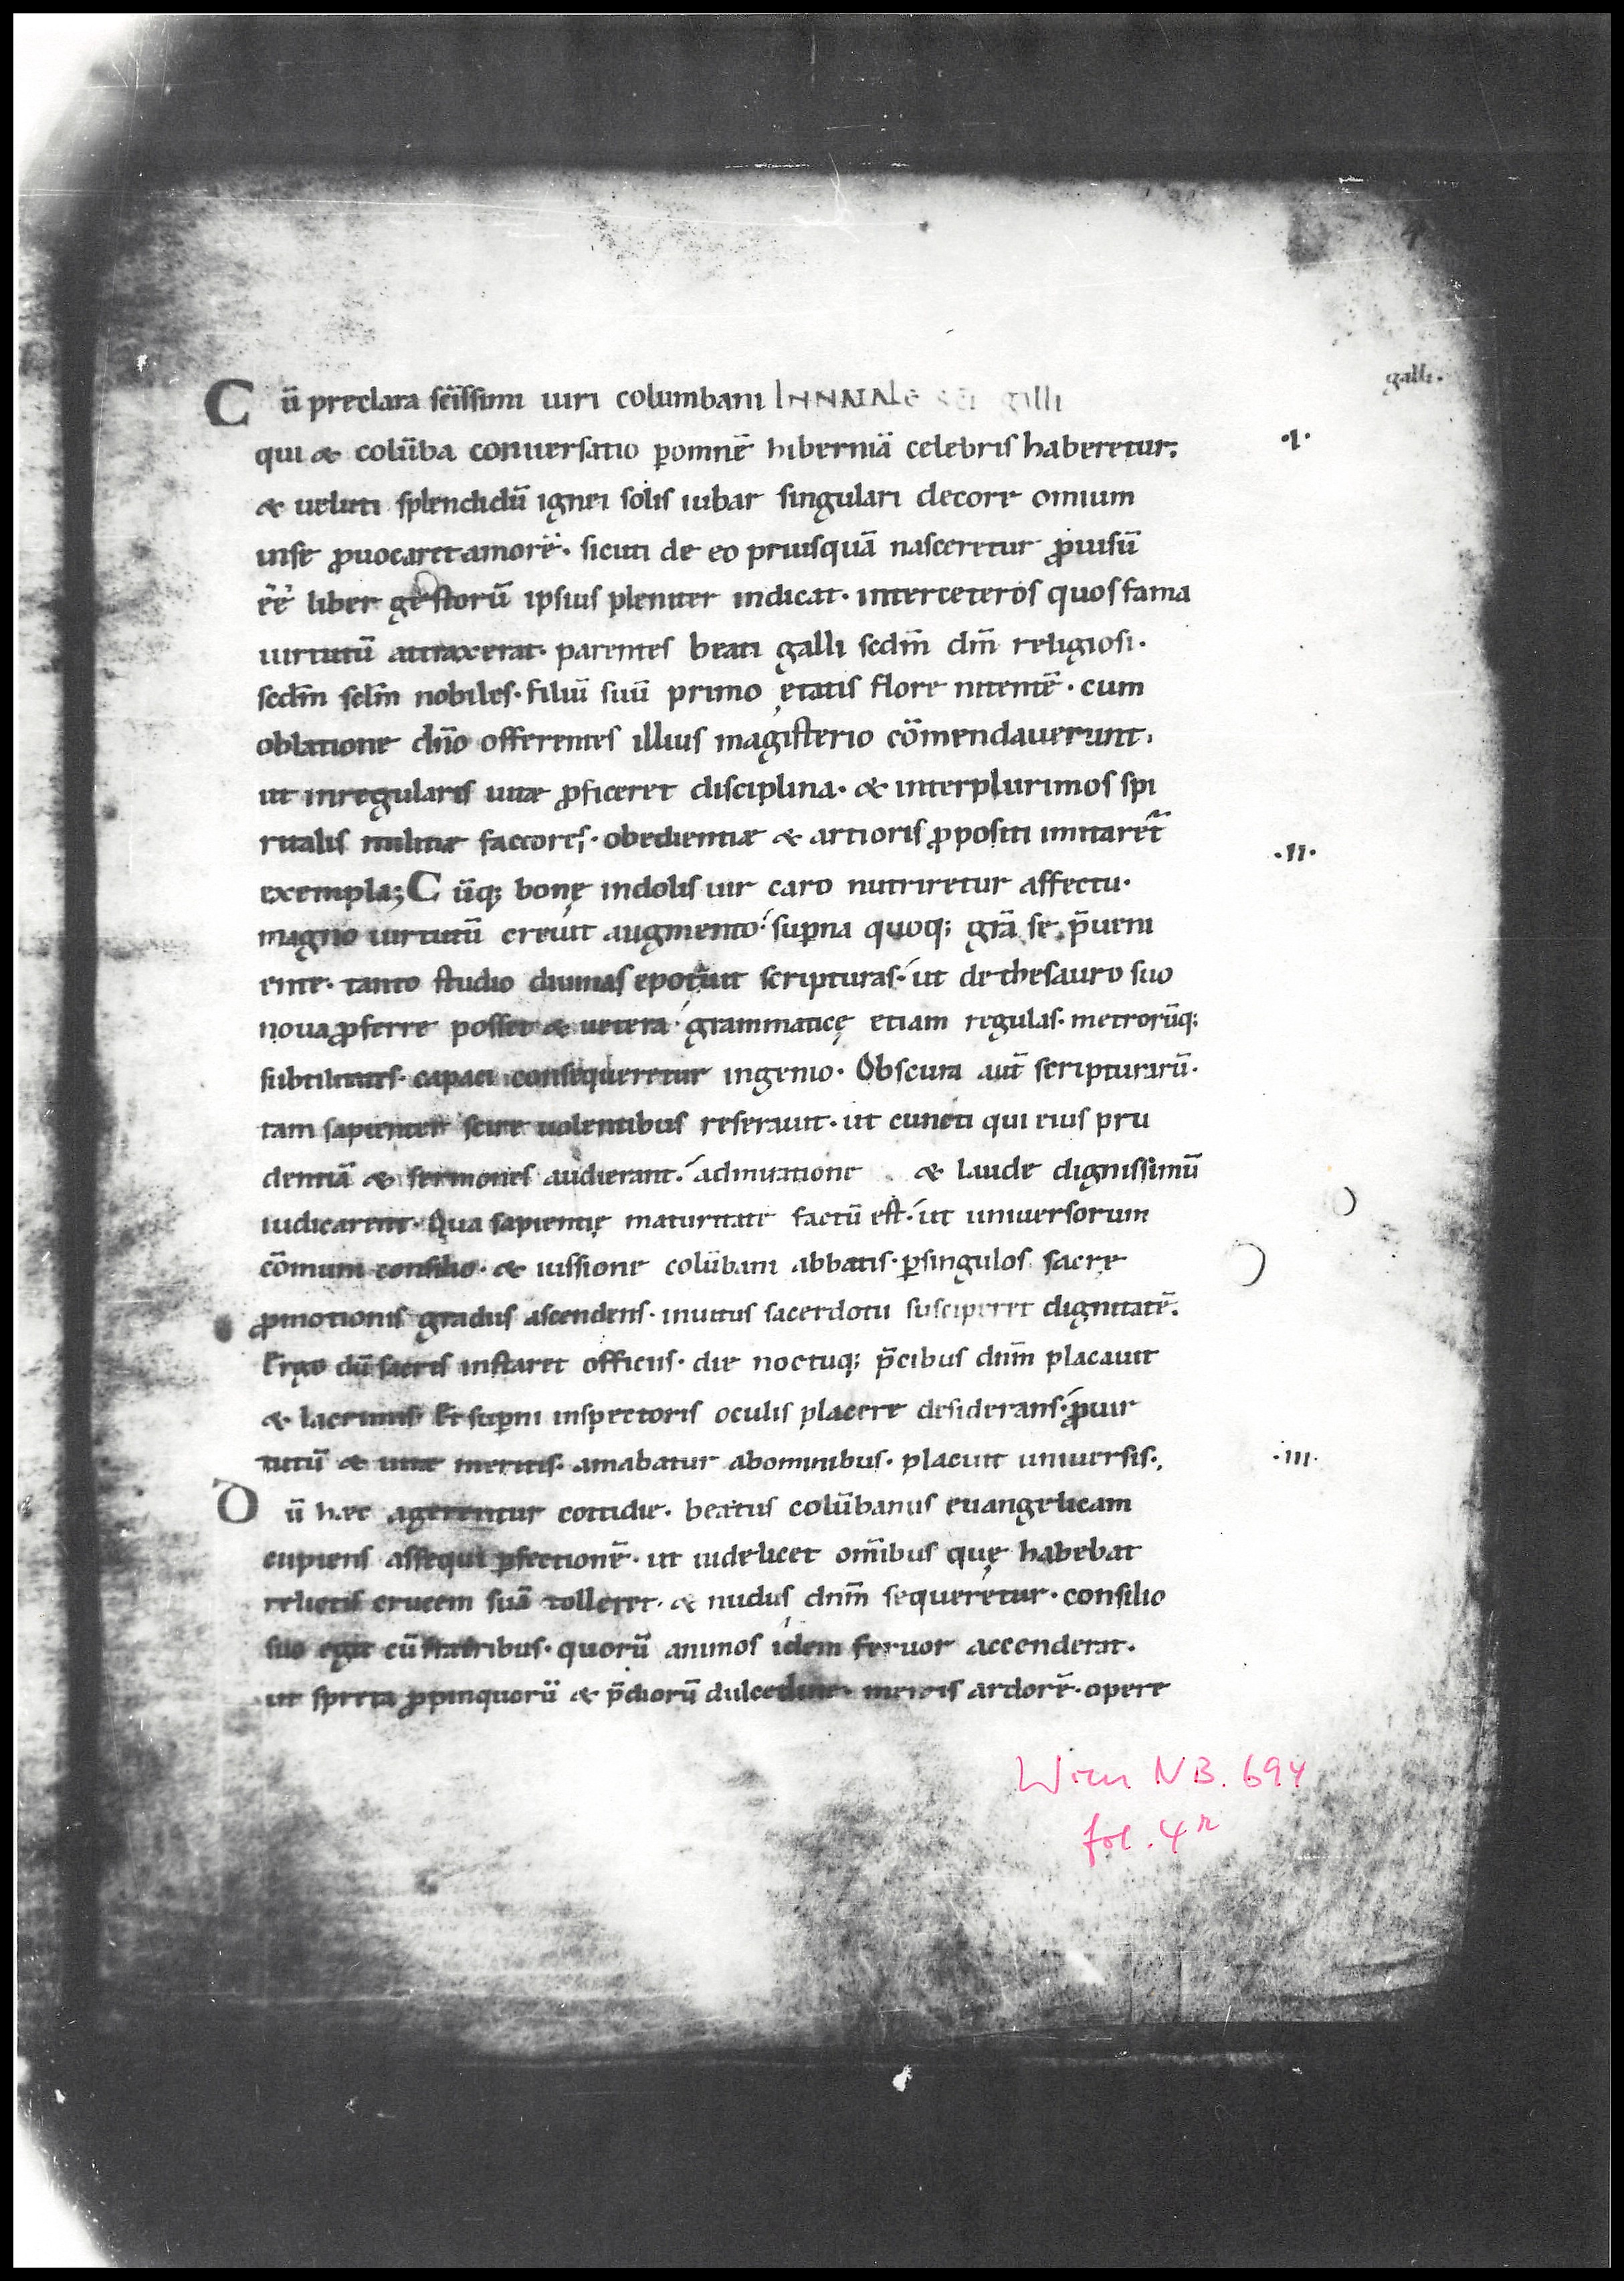 galli.
Cū preclara sc̄issimi uiri columbani IN NATALE sc̄i galli
qui & colūba conuersatio ꝑomnē hiberniā celebris haberetur; .I.
& ueluti splendidū ignei solis iubar singulari decore omium
inse ꝓuocaret amorē. sicuti de eo priusquā nasceretur ꝓuisū
ēē liber gestorū ipsius pleniter indicat. interceteros quos fama
uirtutū attraxerat. parentes beati galli scdm̄ dm̄ religiosi.
scdm̄ sclm̄ nobiles. filiū suū primo ętatis flore nitentē. cum
oblatione dn̄o offerentes illius magisterio cōmendauerunt.
ut inregularis uitæ ꝓficeret disciplina. & interplurimos spi
ritalis militiæ factores. obedientiæ & artioris ꝓpositi imitaret᷑
exempla; Cūq; bonę indolis uir caro nutriretur affectu. .II.
magno uirtutū creuit augmento. suꝑna quoq; grā se p̄ueni
ente. tanto studio diuinas epotauit scripturas. ut dethesauro suo
noua ꝓferre posset & uetera. grammaticę etiam regulas. metrorūq;
subtilitates. capaci consequeretur ingenio. Obscura aut̄ scripturarū.
tam sapienter scire uolentibus reserauit. ut cuncti qui eius pru
dentiā & sermones audierant. admiratione & laude dignissimū
iudicarent. Qua sapientię maturitate factū est. ut uniuersorum
cōmuni consilio. & iussione colūbani abbatis. ꝑsingulos sacrę
ꝓmotionis gradus ascendens. inuitus sacerdotii susciperet dignitatē.
Ergo dū sacris instaret officiis. die noctuq; p̄cibus dnm̄ placauit
& lacrimis. Et suꝑni inspectoris oculis placere desiderans. ꝓuir
tutū & uitæ meritis. amabatur abomnibus. placuit uniuersis. .III.
Dū hæc agerentur cottidie. beatus colūbanus euangelicam
cupiens assequi ꝑfectionē. ut uidelicet om̄ibus quę habebat
relictis crucem suā tolleret. & nudus dnm̄ sequeretur. consilio
suo egit cū fratribus. quorū animos idem feruor accenderat.
ut spreta ꝓpinquorū & p̄diorū dulcedine. mentis ardorē. opere
Wien NB. 694
fol. 4r